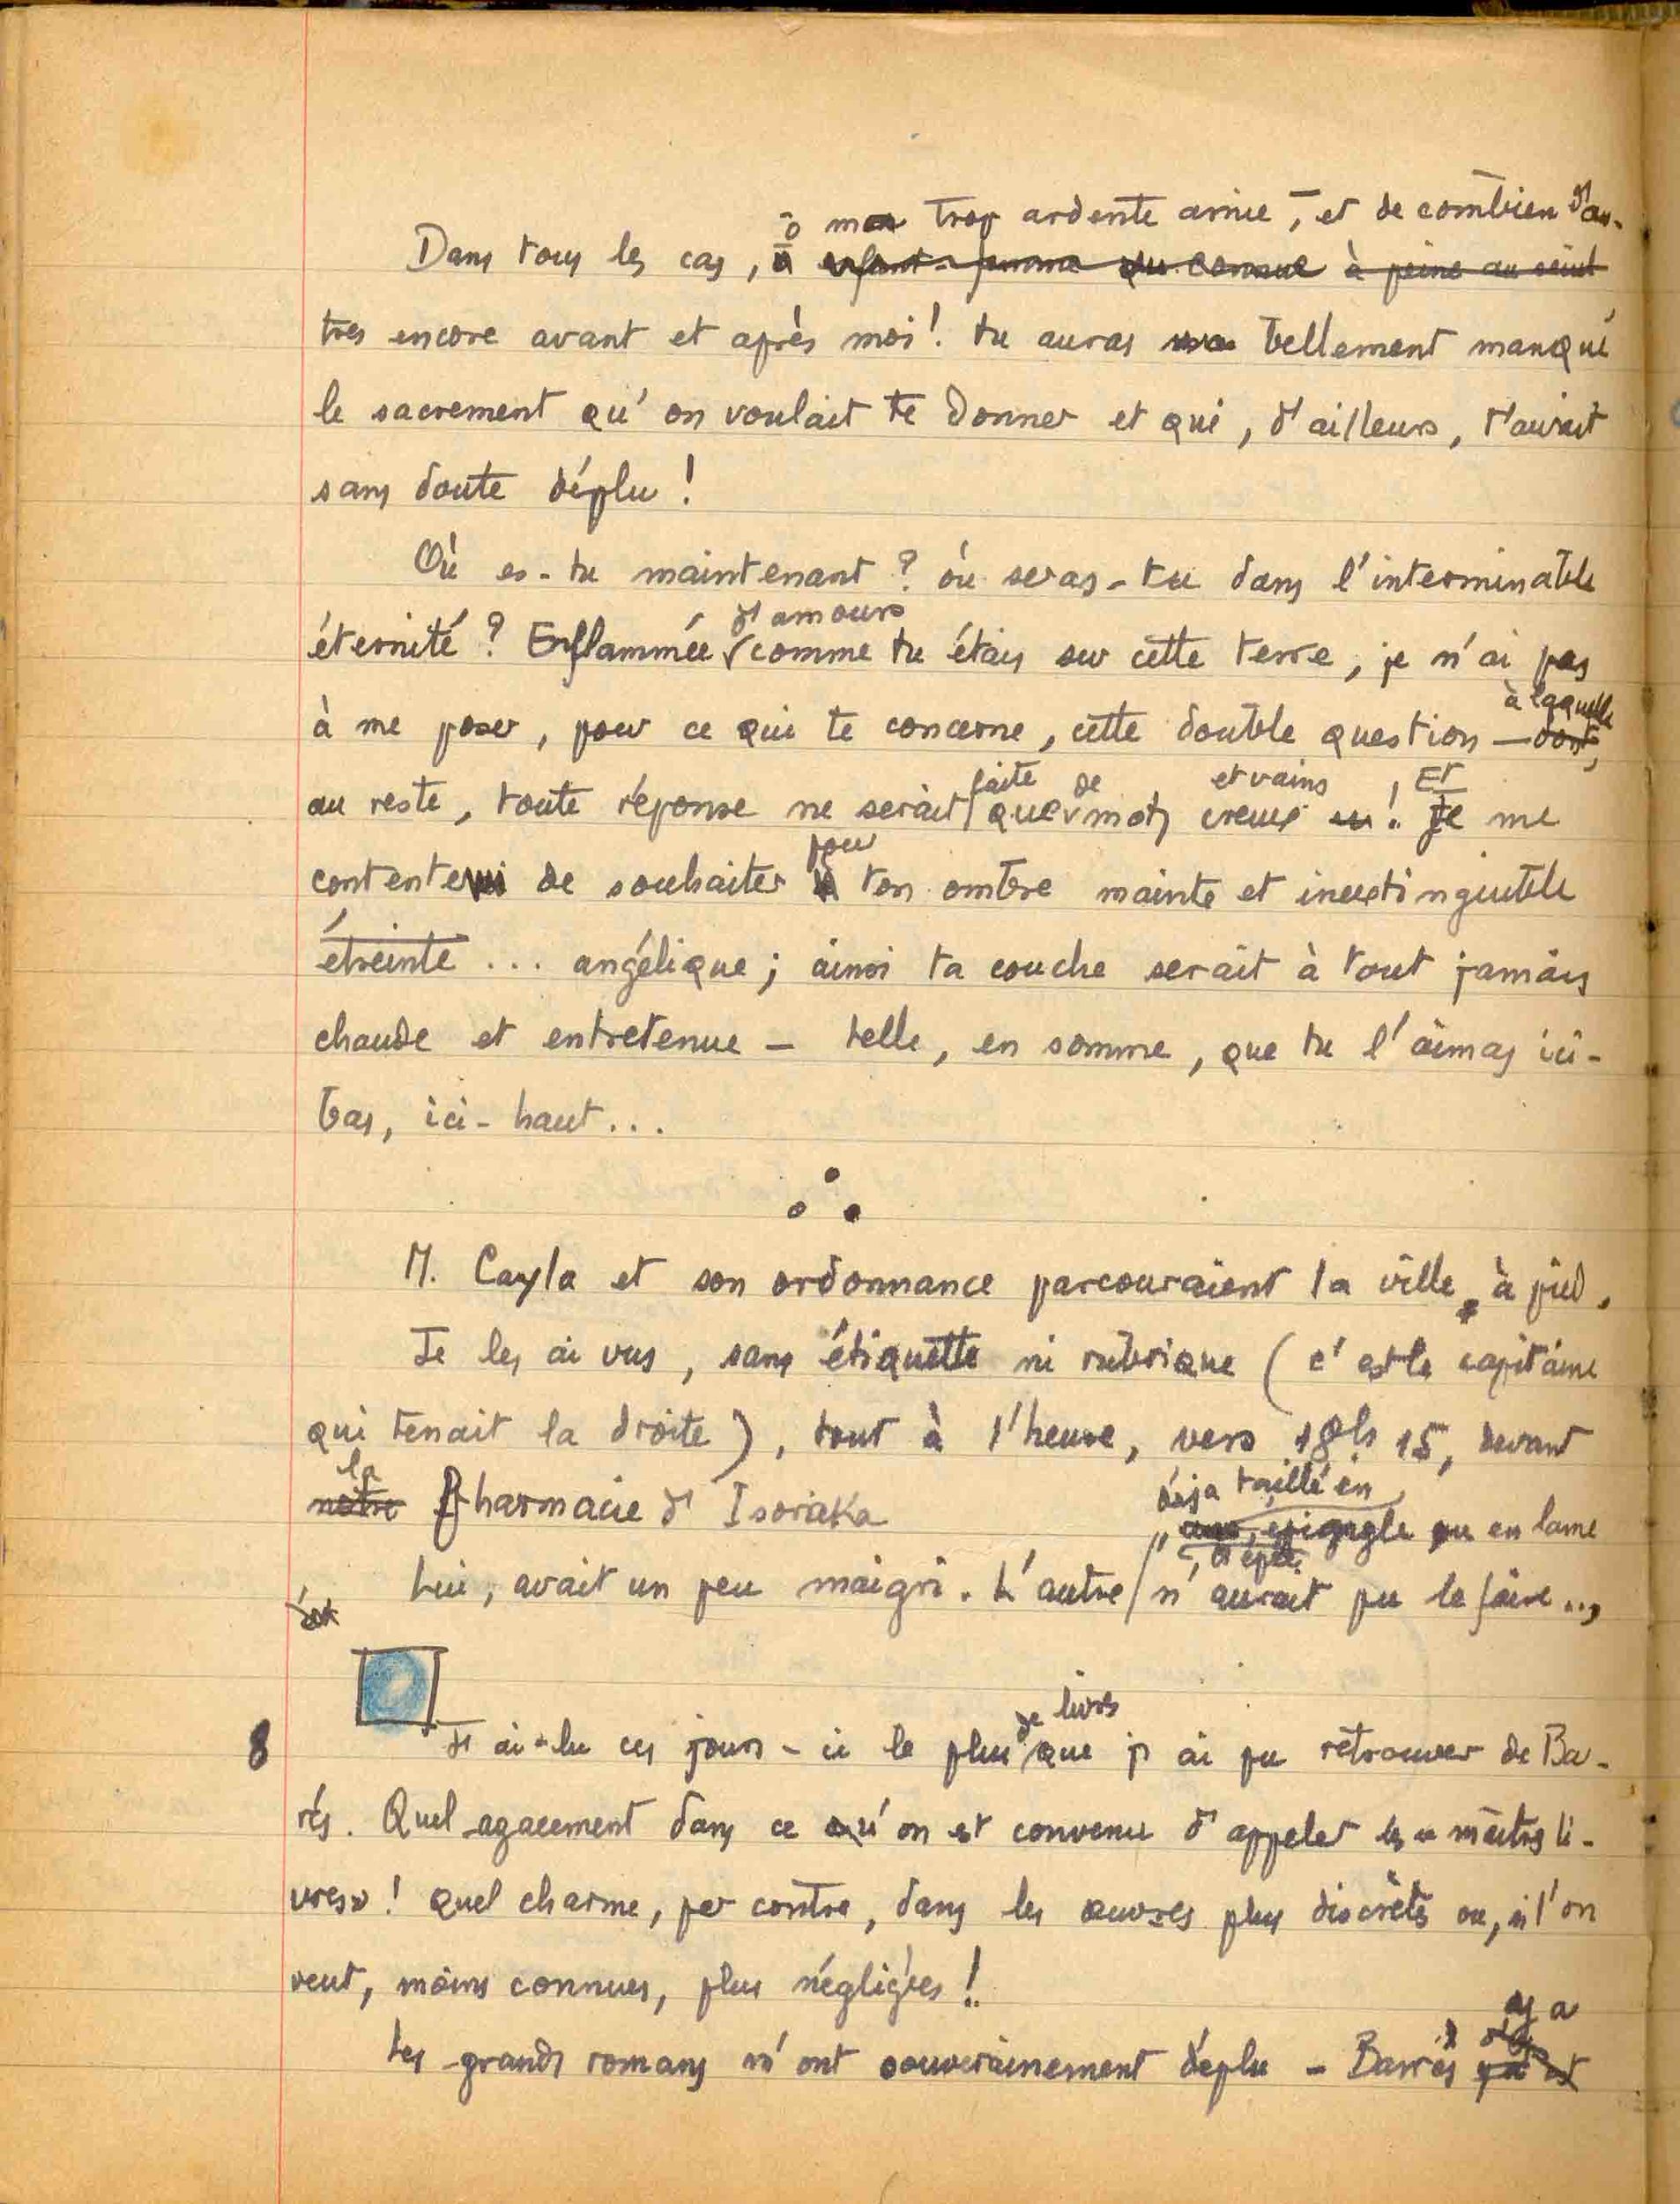 ō ma trop ardente amie, et de combien d'au-
Dans tous les cas, ō enfant-femme à peine au seuil
tres encore avant et après moi! tu auras tellement manqué
le sacrement qu'on voulait te donner et qui, d'ailleurs, t'aurait
sans doute déplu!
Où es-tu maintenant? où seras-tu dans l'interminable
d'amours
éternité? Enflammée comme tu étais sur cette terre, je n'ai pas
à laquelle
à me poser, pour ce qui te concerne, cette double question — dont,
faite de et vains ! Et
au reste, toute réponse ne serait que mots creux ! Je me
pour
contente de souhaiter à ton ombre mainte et inextinguible
étreinte... angélique; ainsi ta couche serait à tout jamais
chaude et entretenue — telle, en somme, que tu l'aimas ici-
bas, ici-haut...
M. Cayla et son ordonnance parcouraient la ville, à pied.
Je les ai vus, sans étiquette ni rubrique (c'est le capitaine
qui tenait la droite), tout à l'heure, vers 18h 15, devant
la
notre Pharmacie d'Isoraka
déjà taillé en
épingle ou en lame
d'épée,
Lui, avait un peu maigri. L'autre n'aurait pu le faire...,
de livres
8 J'ai lu ces jours-ci le plus que j'ai pu retrouver de Ba-
rés. Quel agacement dans ce qu'on est convenu d'appeler les « maîtres li-
vres»! quel charme, par contre, dans les œuvres plus discrètes ou, si l'on
veut, moins connues, plus négligées!
y a
Les grands romans m'ont souverainement déplu — Barrès